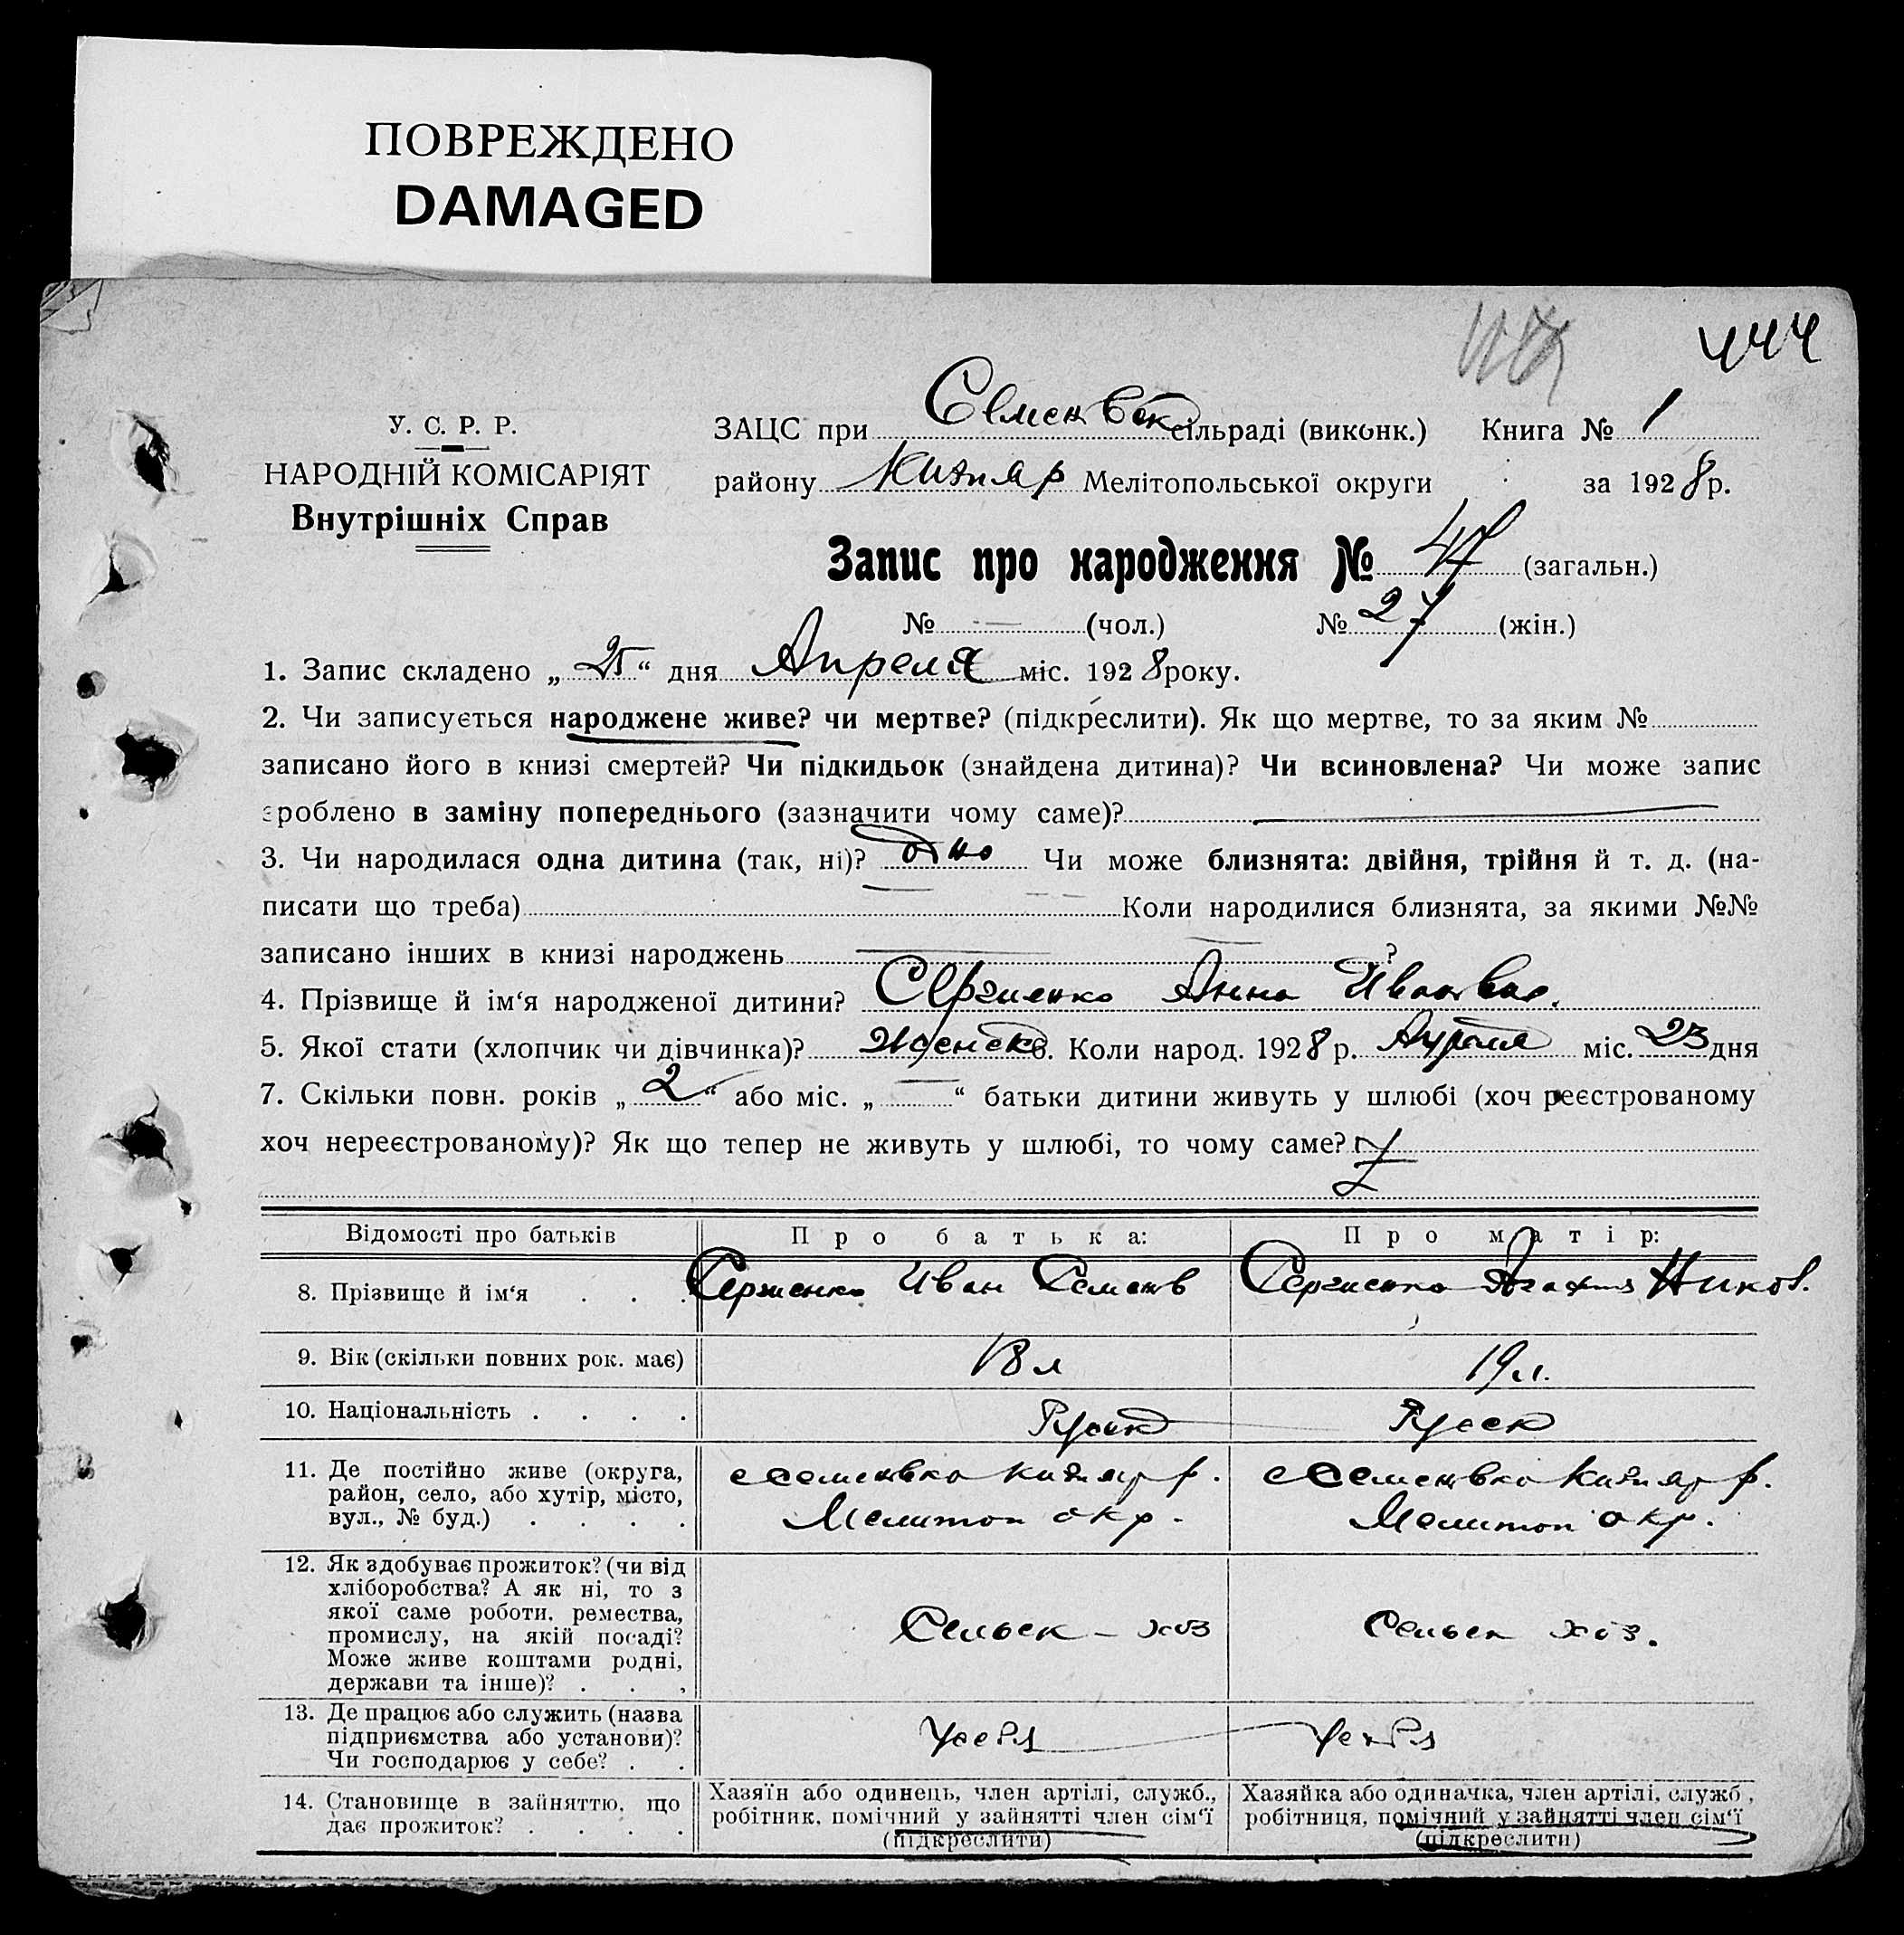 ПОВРЕЖДЕНО
DAMAGED
444
У. С. Р. Р.
НАРОДНІЙ КОМІСАРІЯТ
Внутрішніх Справ
ЗАЦС при Семеновск сільраді (виконк.) Книга № 1
району Кизияр Мелітопольської округи за 1928 р.
Запис про народження № 47 (загальн.)
№ — (чол.) № 27 (жін.)
1. Запис складено „25“ дня Апреля міс. 1928 року.
2. Чи записується народжене живе? чи мертве? (підкреслити). Як що мертве, то за яким №
записано його в книзі смертей? Чи підкидьок (знайдена дитина)? Чи всиновлена? Чи може запис
зроблено в заміну попереднього (зазначити чому саме)? —
3. Чи народилася одна дитина (так, ні)? одно Чи може близнята: двійня, трійня й т. д. (на-
писати що треба) Коли народилися близнята, за якими №№
записано інших в книзі народжень — ?
4. Прізвище й ім‘я народженої дитини? Сергиенко Анна Ивановна.
5. Якої стати (хлопчик чи дівчинка)? женск 6. Коли народ. 1928 р. Апреля міс. 23 дня
7. Скільки повн. років „2“ або міс. „—“ батьки дитини живуть у шлюбі (хоч реєстрованому
хоч нереєстрованому)? Як що тепер не живуть у шлюбі, то чому саме?
Відомості про батьків Про батька: Про матір:
8. Прізвище й ім‘я . . . Сергиенко Иван Семенов Сергиенко Агафия Никол.
9. Вік (скільки повних рок. має) 18 л 19 л.
10. Національність . . . . Русск Русск
11. Де постійно живе (округа,
район, село, або хутір, місто,
вул., № буд.) . . . .
с Семеновка Кизияр р.
Мелитоп окр.
с Семеновка Кизияр р.
Мелитоп окр.
12. Як здобуває прожиток? (чи від
хліборобства? А як ні, то з
якої саме роботи, ремества,
промислу, на якій посаді?
Може живе коштами родні,
держави та інше)? . . .
Сельск – хоз
Сельск хоз.
13. Де працює або служить (назва
підприємства або установи)?
Чи господарює у себе? . .
У себя
У себя
14. Становище в зайняттю, що
дає прожиток? . . . .
Хазяїн або одинець, член артілі, служб.,
робітник, помічний у зайнятті член сім‘ї
(підкреслити)
Хазяйка або одиначка, член артілі, служб.,
робітниця, помічний у зайнятті член сім‘ї
(підкреслити)